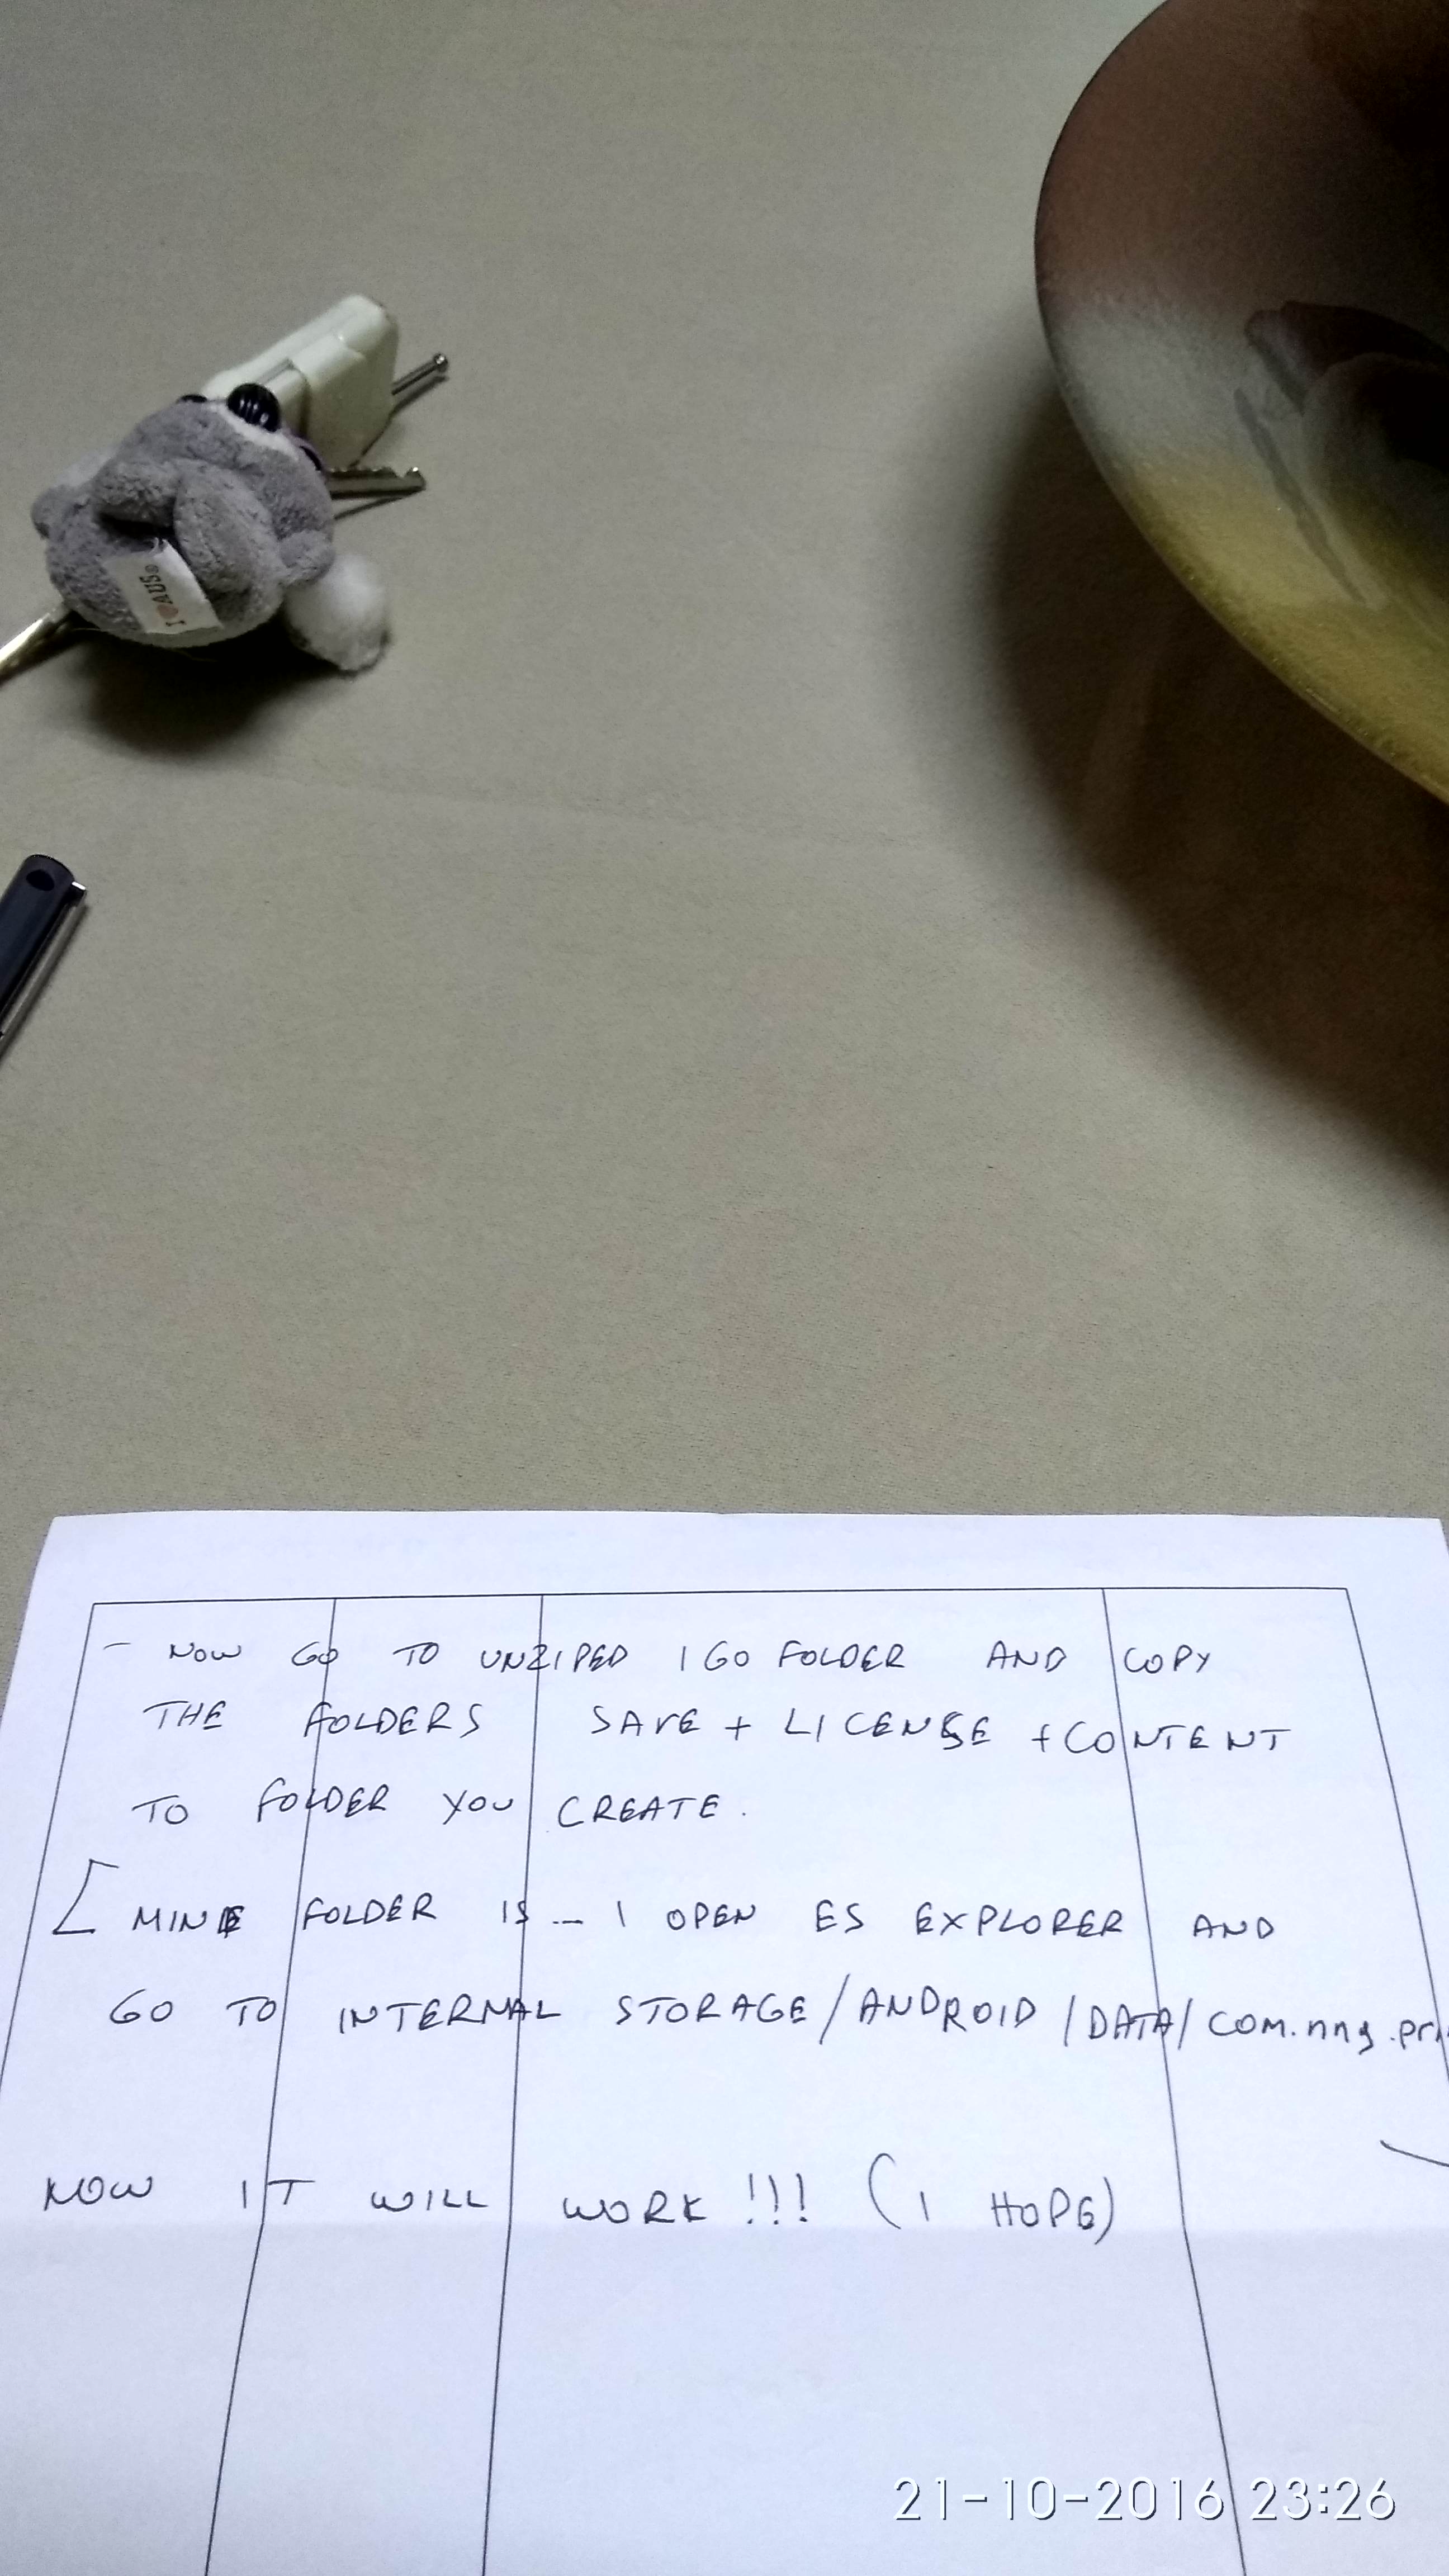 I ❤ AUS®
- NOW GO TO UNZIPED IGO FOLDER AND COPY
THE FOLDERS SAVE + LICENSE + CONTENT
TO FOLDER YOU CREATE.
[ MINE FOLDER IS - I OPEN ES EXPLORER AND
GO TO INTERNAL STORAGE/ANDROID/DATA/com.nng.pri
NOW IT WILL WORK!!! (I HOPE)
21-10-2016 23:26